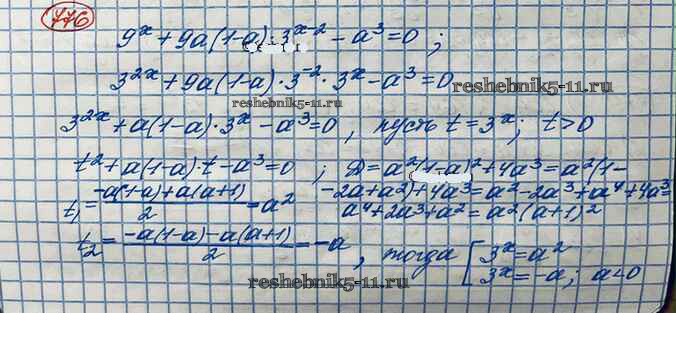 776
9^x + 9a(1-a)·3^(x-2) - a^3 = 0 ;
3^(2x) + 9a(1-a)·3^(-2)·3^x - a^3 = 0
reshebnik5-11.ru
reshebnik5-11.ru
3^(2x) + a(1-a)·3^x - a^3 = 0 , пусть t = 3^x ; t > 0
t^2 + a(1-a)·t - a^3 = 0 ; D = a^2(1-a)^2 + 4a^3 = a^2(1-
-2a+a^2) + 4a^3 = a^2 - 2a^3 + a^4 + 4a^3 =
t1 = (-a(1-a)+a(a+1))/2 = a^2
a^4 + 2a^3 + a^2 = a^2(a+1)^2
t2 = (-a(1-a)-a(a+1))/2 = -a , тогда [ 3^x = a^2
3^x = -a ; a < 0
reshebnik5-11.ru